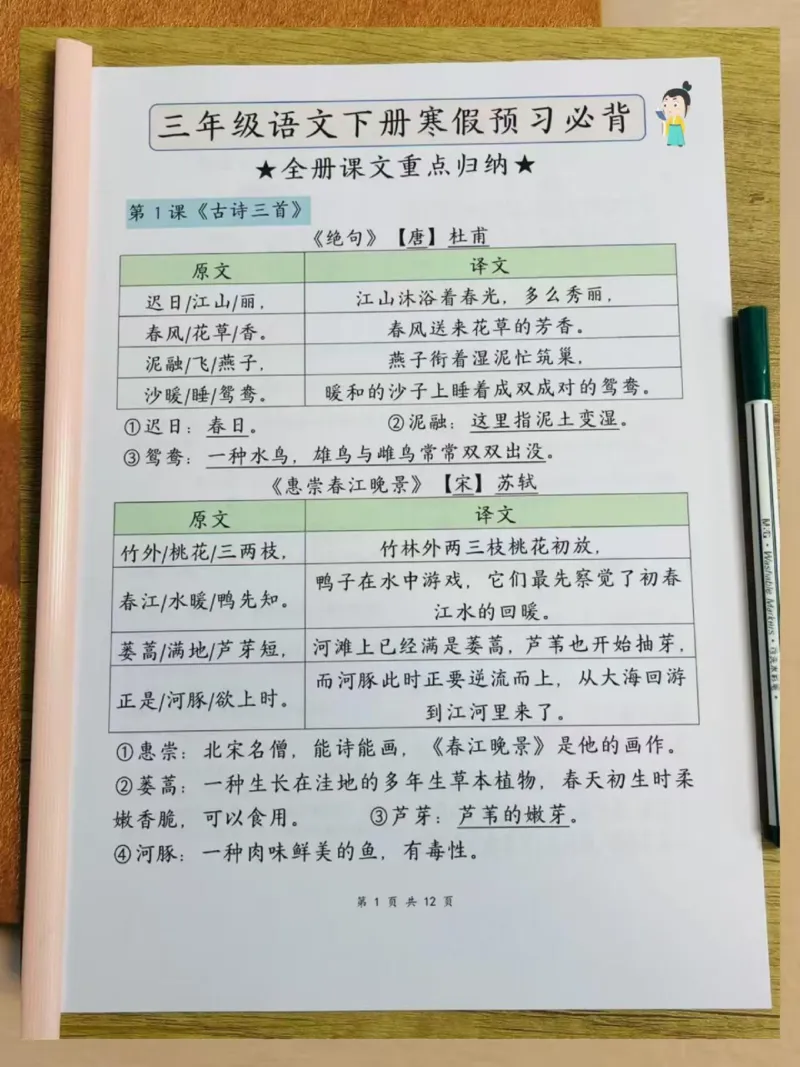 三年级语文下册寒假预习必背
★全册课文重点归纳★
第1课《古诗三首》
《绝句》【唐】杜甫
原文 译文
迟日/江山/丽, 江山沐浴着春光，多么秀丽，
春风/花草/香。 春风送来花草的芳香。
泥融/飞/燕子, 燕子衔着湿泥忙筑巢，
沙暖/睡/鸳鸯。 暖和的沙子上睡着成双成对的鸳鸯。
①迟日：春日。 ②泥融：这里指泥土变湿。
③鸳鸯：一种水鸟，雄鸟与雌鸟常常双双出没。
《惠崇春江晚景》【宋】苏轼
原文 译文
竹外/桃花/三两枝, 竹林外两三枝桃花初放，
春江/水暖/鸭先知。 鸭子在水中游戏，它们最先察觉了初春
江水的回暖。
蒌蒿/满地/芦芽短, 河滩上已经满是蒌蒿，芦苇也开始抽芽，
正是/河豚/欲上时。 而河豚此时正要逆流而上，从大海回游
到江河里来了。
①惠崇：北宋名僧，能诗能画，《春江晚景》是他的画作。
②蒌蒿：一种生长在洼地的多年生草本植物，春天初生时柔
嫩香脆，可以食用。 ③芦芽：芦苇的嫩芽。
④河豚：一种肉味鲜美的鱼，有毒性。
第 1 页 共 12 页
M&G • Washable Markers • 可洗水彩笔